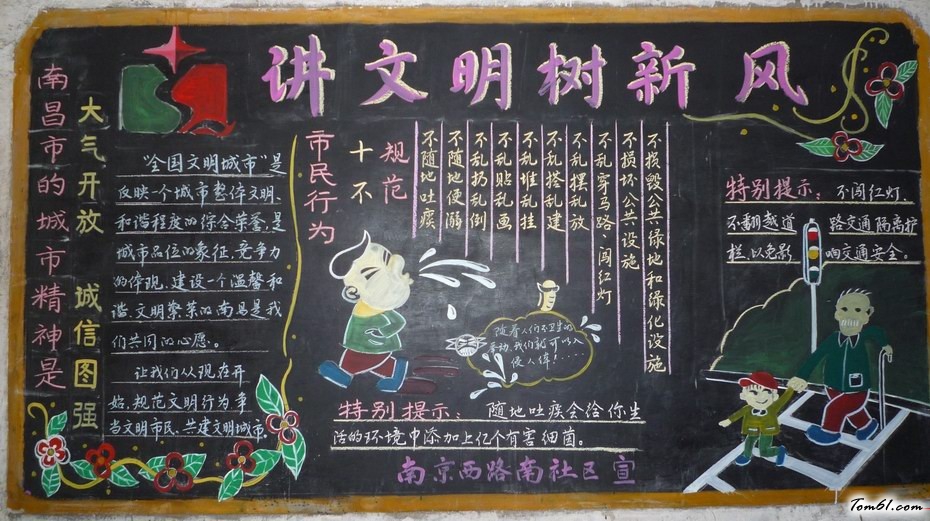 讲文明树新风
南昌市的城市精神是
大气开放 诚信图强
“全国文明城市”是
反映一个城市整体文明、
和谐程度的综合荣誉,是
城市品位的象征,竞争力
的体现。建设一个温馨和
谐、文明繁荣的南昌是我
们共同的心愿。
让我们从现在开
始,规范文明行为,争
当文明市民、共建文明城市。
市民行为
十不
规范
不随地吐痰
不随地便溺
不乱扔乱倒
不乱贴乱画
不乱堆乱挂
不乱搭乱建
不乱摆乱放
不乱穿马路、闯红灯
不损坏公共设施
不损毁公共绿地和绿化设施
随着人们不卫生的
举动,我们就可以入
侵人体!....
特别提示: 随地吐痰会给你生
活的环境中添加上亿个有害细菌。
南京西路南社区宣
特别提示: 不闯红灯、
不翻越道路交通隔离护
栏,以免影响交通安全。
Tom61.com